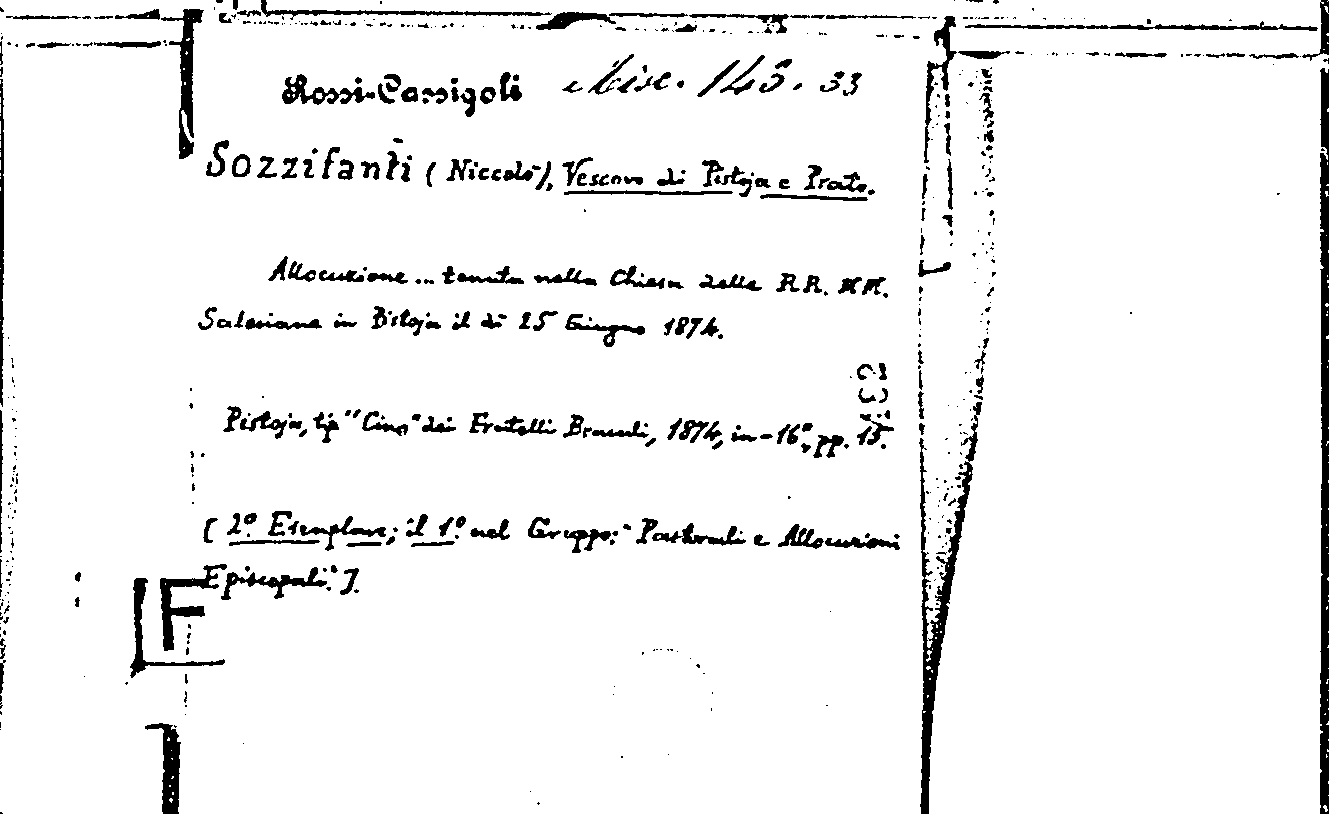 Rossi-Cassigoli Misc. 145. 33
Sozzifanti (Niccolò), Vescovo di Pistoja e Prato.
Allocuzione ... tenuta nella Chiesa delle RR. MM.
Salesiane in Pistoja il dì 25 Giugno 1874.
Pistoja, tip "Cino" dei Fratelli Bracali, 1874, in-16°, pp. 15.
[2° Esemplare; il 1° nel Gruppo: "Pastorali e Allocuzioni
Episcopali"].